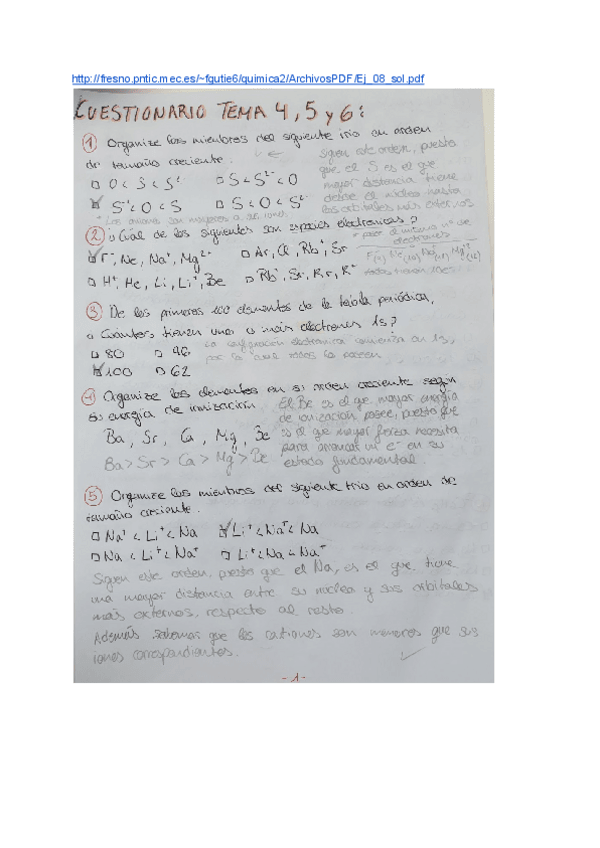 http://fresno.pntic.mec.es/~fgutie6/quimica2/ArchivosPDF/Ej_08_sol.pdf
CUESTIONARIO TEMA 4, 5 y 6:
① Organize los miembros del siguiente trío en orden
de tamaño creciente.
Siguen este orden, puesto
que, el S es el que
mayor distancia tiene
desde el núcleo hasta
los orbitales más
□ O < S < S²⁻ □ S < S²⁻ < O
□ S²⁻ < O < S □ S < O < S²⁻
* Los aniones son mayores a
② ¿Cuál de los siguientes son especies electrónicas?
F⁻, Ne, Na⁺, Mg²⁺ □ Ar, Cl, Rb⁺, Sr
□ H⁺, He, Li, Li⁺, Be □ Rb⁺, Sr, Kr, K⁺
nº de
electrones
③ De los primeros 100 elementos de la tabla periódica,
¿Cuántos tienen uno o más electrones 1s?
□ 80 □ 96
□ 100 □ 62
La configuración electrónica comienza en 1s,
por la cual todos la poseen
④ Organize los elementos en su orden creciente según
su energía de ionización
Ba, Sr, Ca, Mg, Be
Ba > Sr > Ca > Mg > Be
El Be es el que mayor energía
de ionización posee, puesto que
es el que mayor fuerza necesita
para arrancar un e⁻ en su
estado fundamental.
⑤ Organize los miembros del siguiente trío en orden de
tamaño creciente.
□ Na⁺ < Li⁺ < Na □ Li⁺ < Na⁺ < Na
□ Na < Li⁺ < Na⁺ □ Li⁺ < Na < Na⁺
Siguen este orden, puesto que el Na, es el que tiene
una mayor distancia entre su núcleo y sus orbitales
más externos, respecto al resto.
Además sabemos que los cationes son menores que sus
iones correspondientes.
-1-